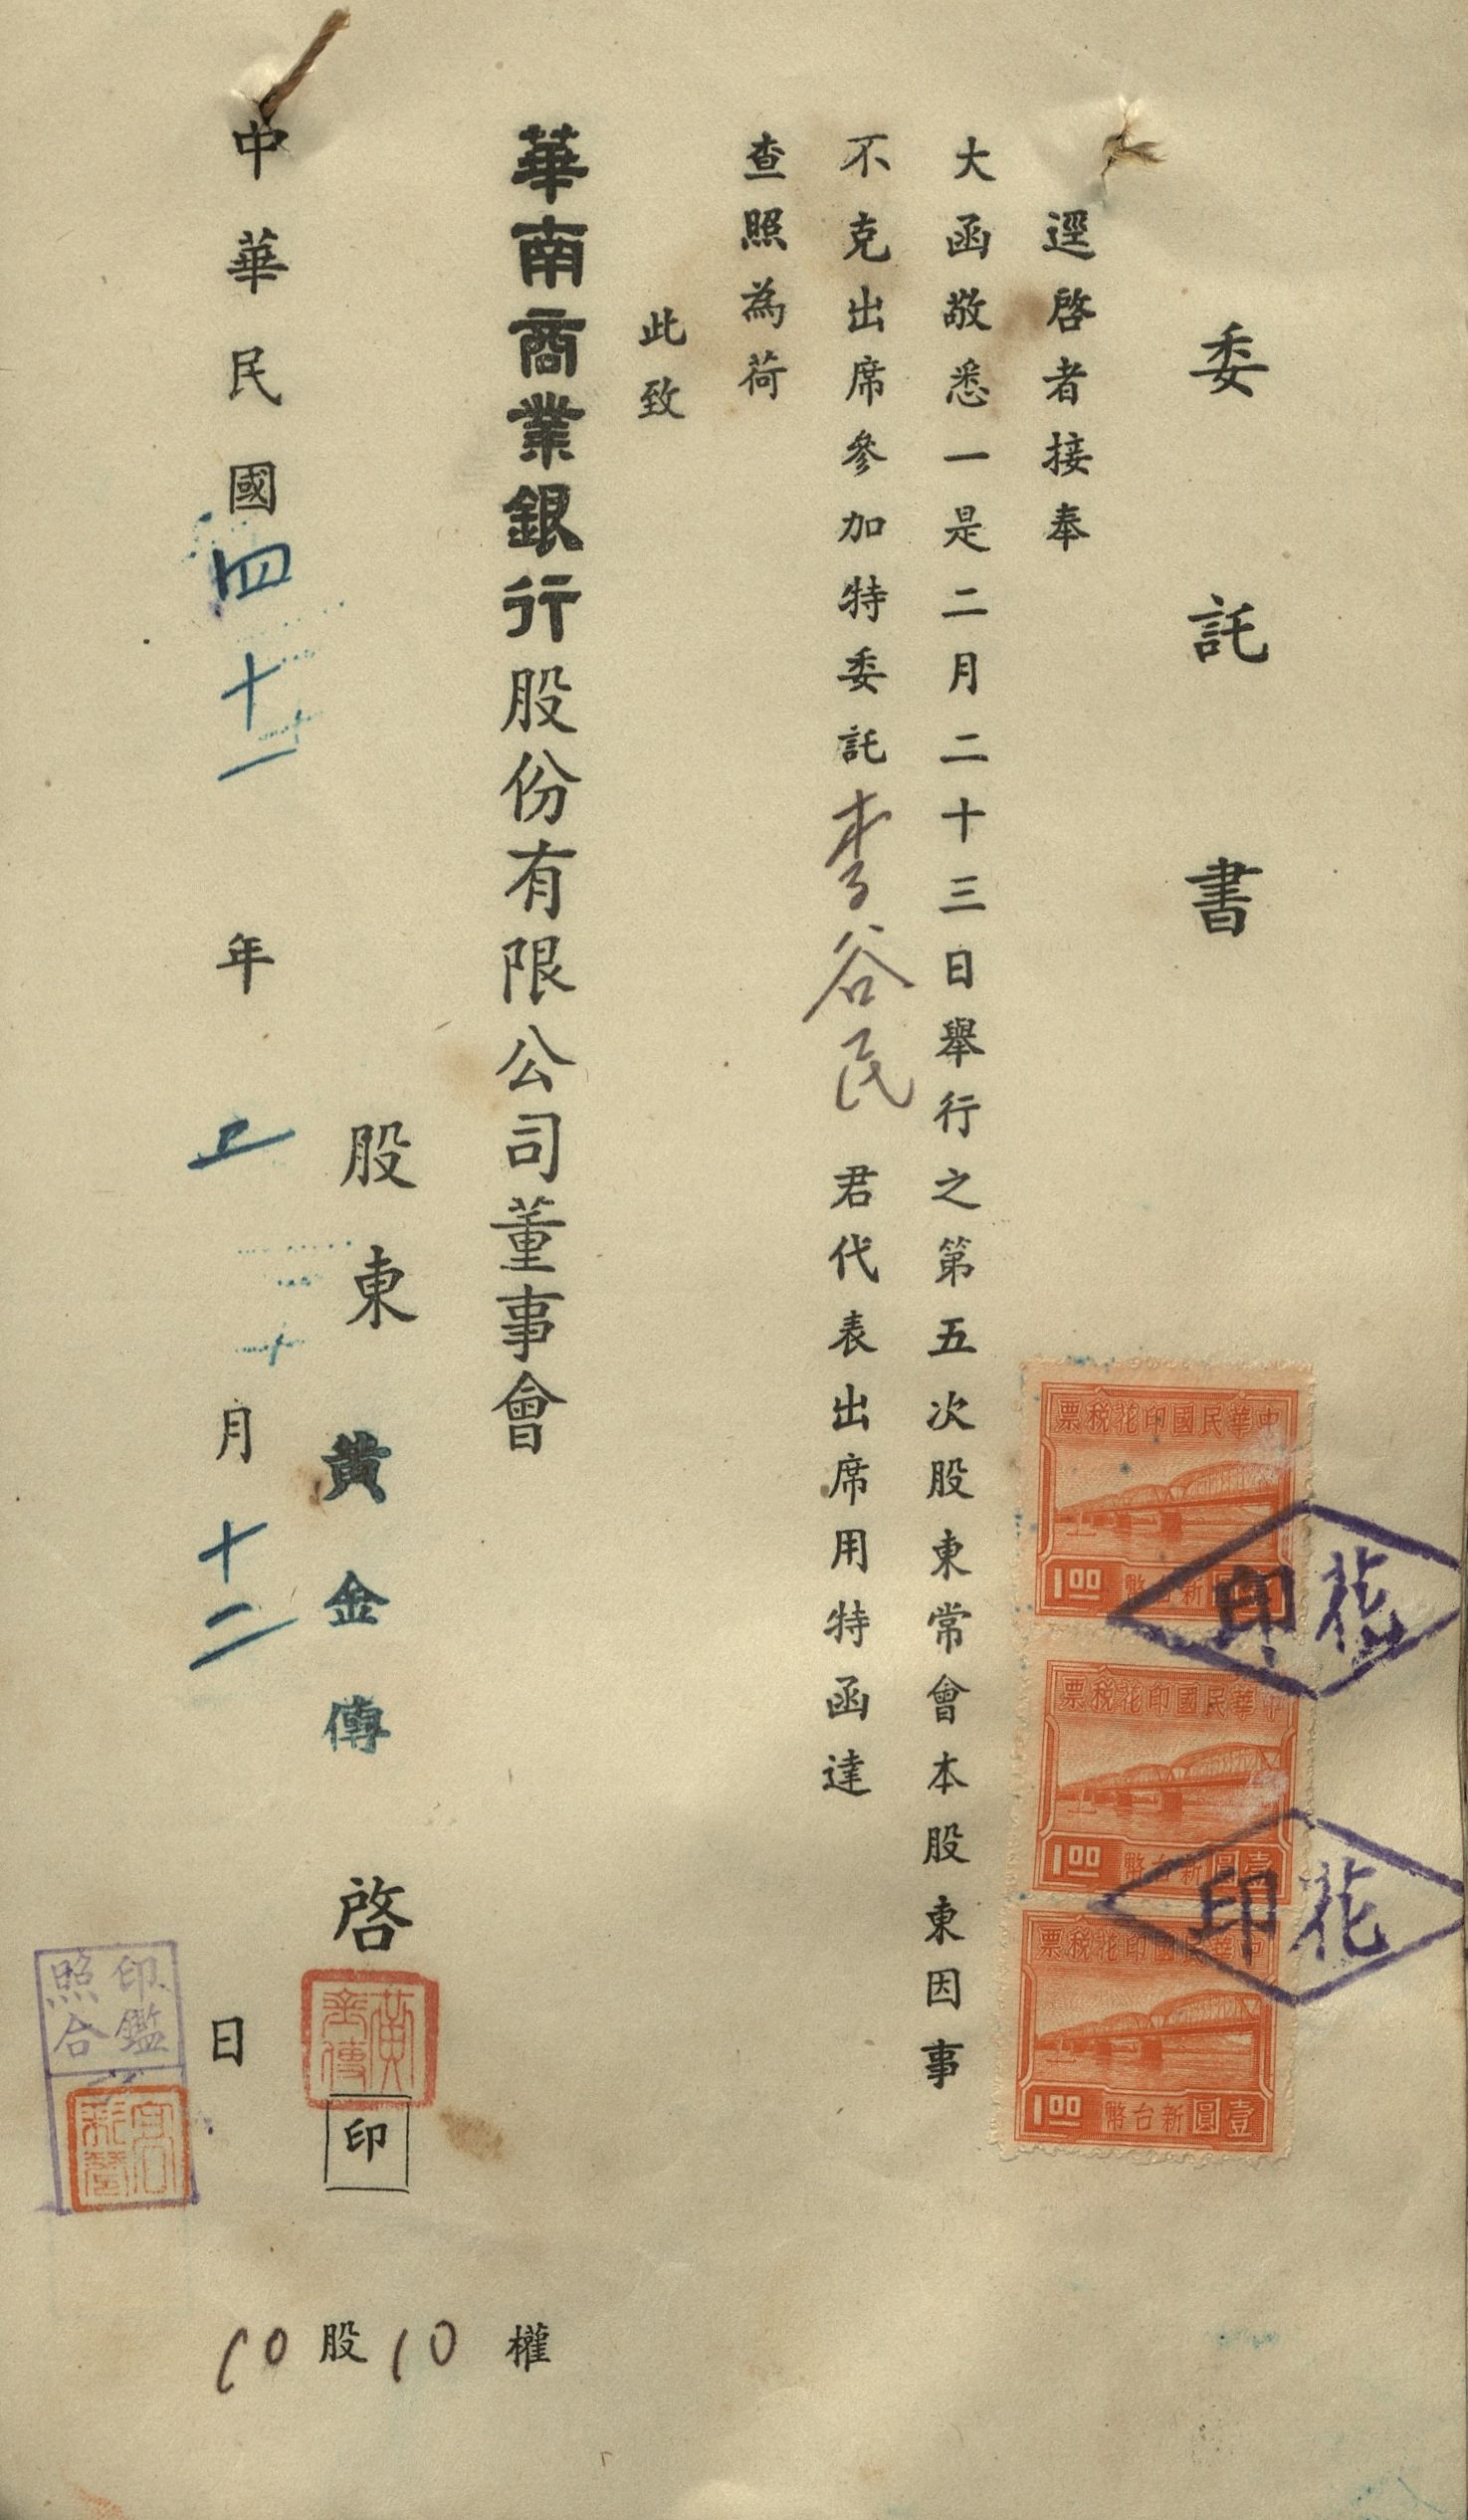 委託書
逕啓者接奉
大函敬悉一是二月二十三日舉行之第五次股東常會本股東因事
不克出席參加特委託李谷民君代表出席用特函達
查照為荷
此致
華南商業銀行股份有限公司董事會
股東 黃金傳 啓
黃金傳
印
中華民國四十一年 月十二日
10股10權
中華民國印花税票
1.00 壹圓新台幣
花印
中華民國印花税票
1.00 壹圓新台幣
花印
中華民國印花税票
1.00 壹圓新台幣
印鑑
照合